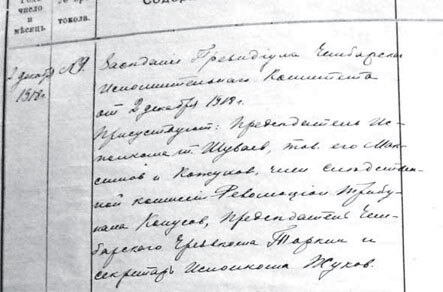 число
и
месяцъ
токола.
2 декабр
1918 г.
№ 4
Заседание Президиума Чембарск.
Исполнительного Комитета
от 2 декабря 1918 г.
Присутствуют: Председатель Ис-
полкома т. Шуваев, тов. его Мак-
симов и Кожухов, член следствен-
ной комиссии Революціон. Трибу-
нала Конусов, Председатель Чем-
барского Чревкома Торкин и
секретарь Исполкома Жуков.